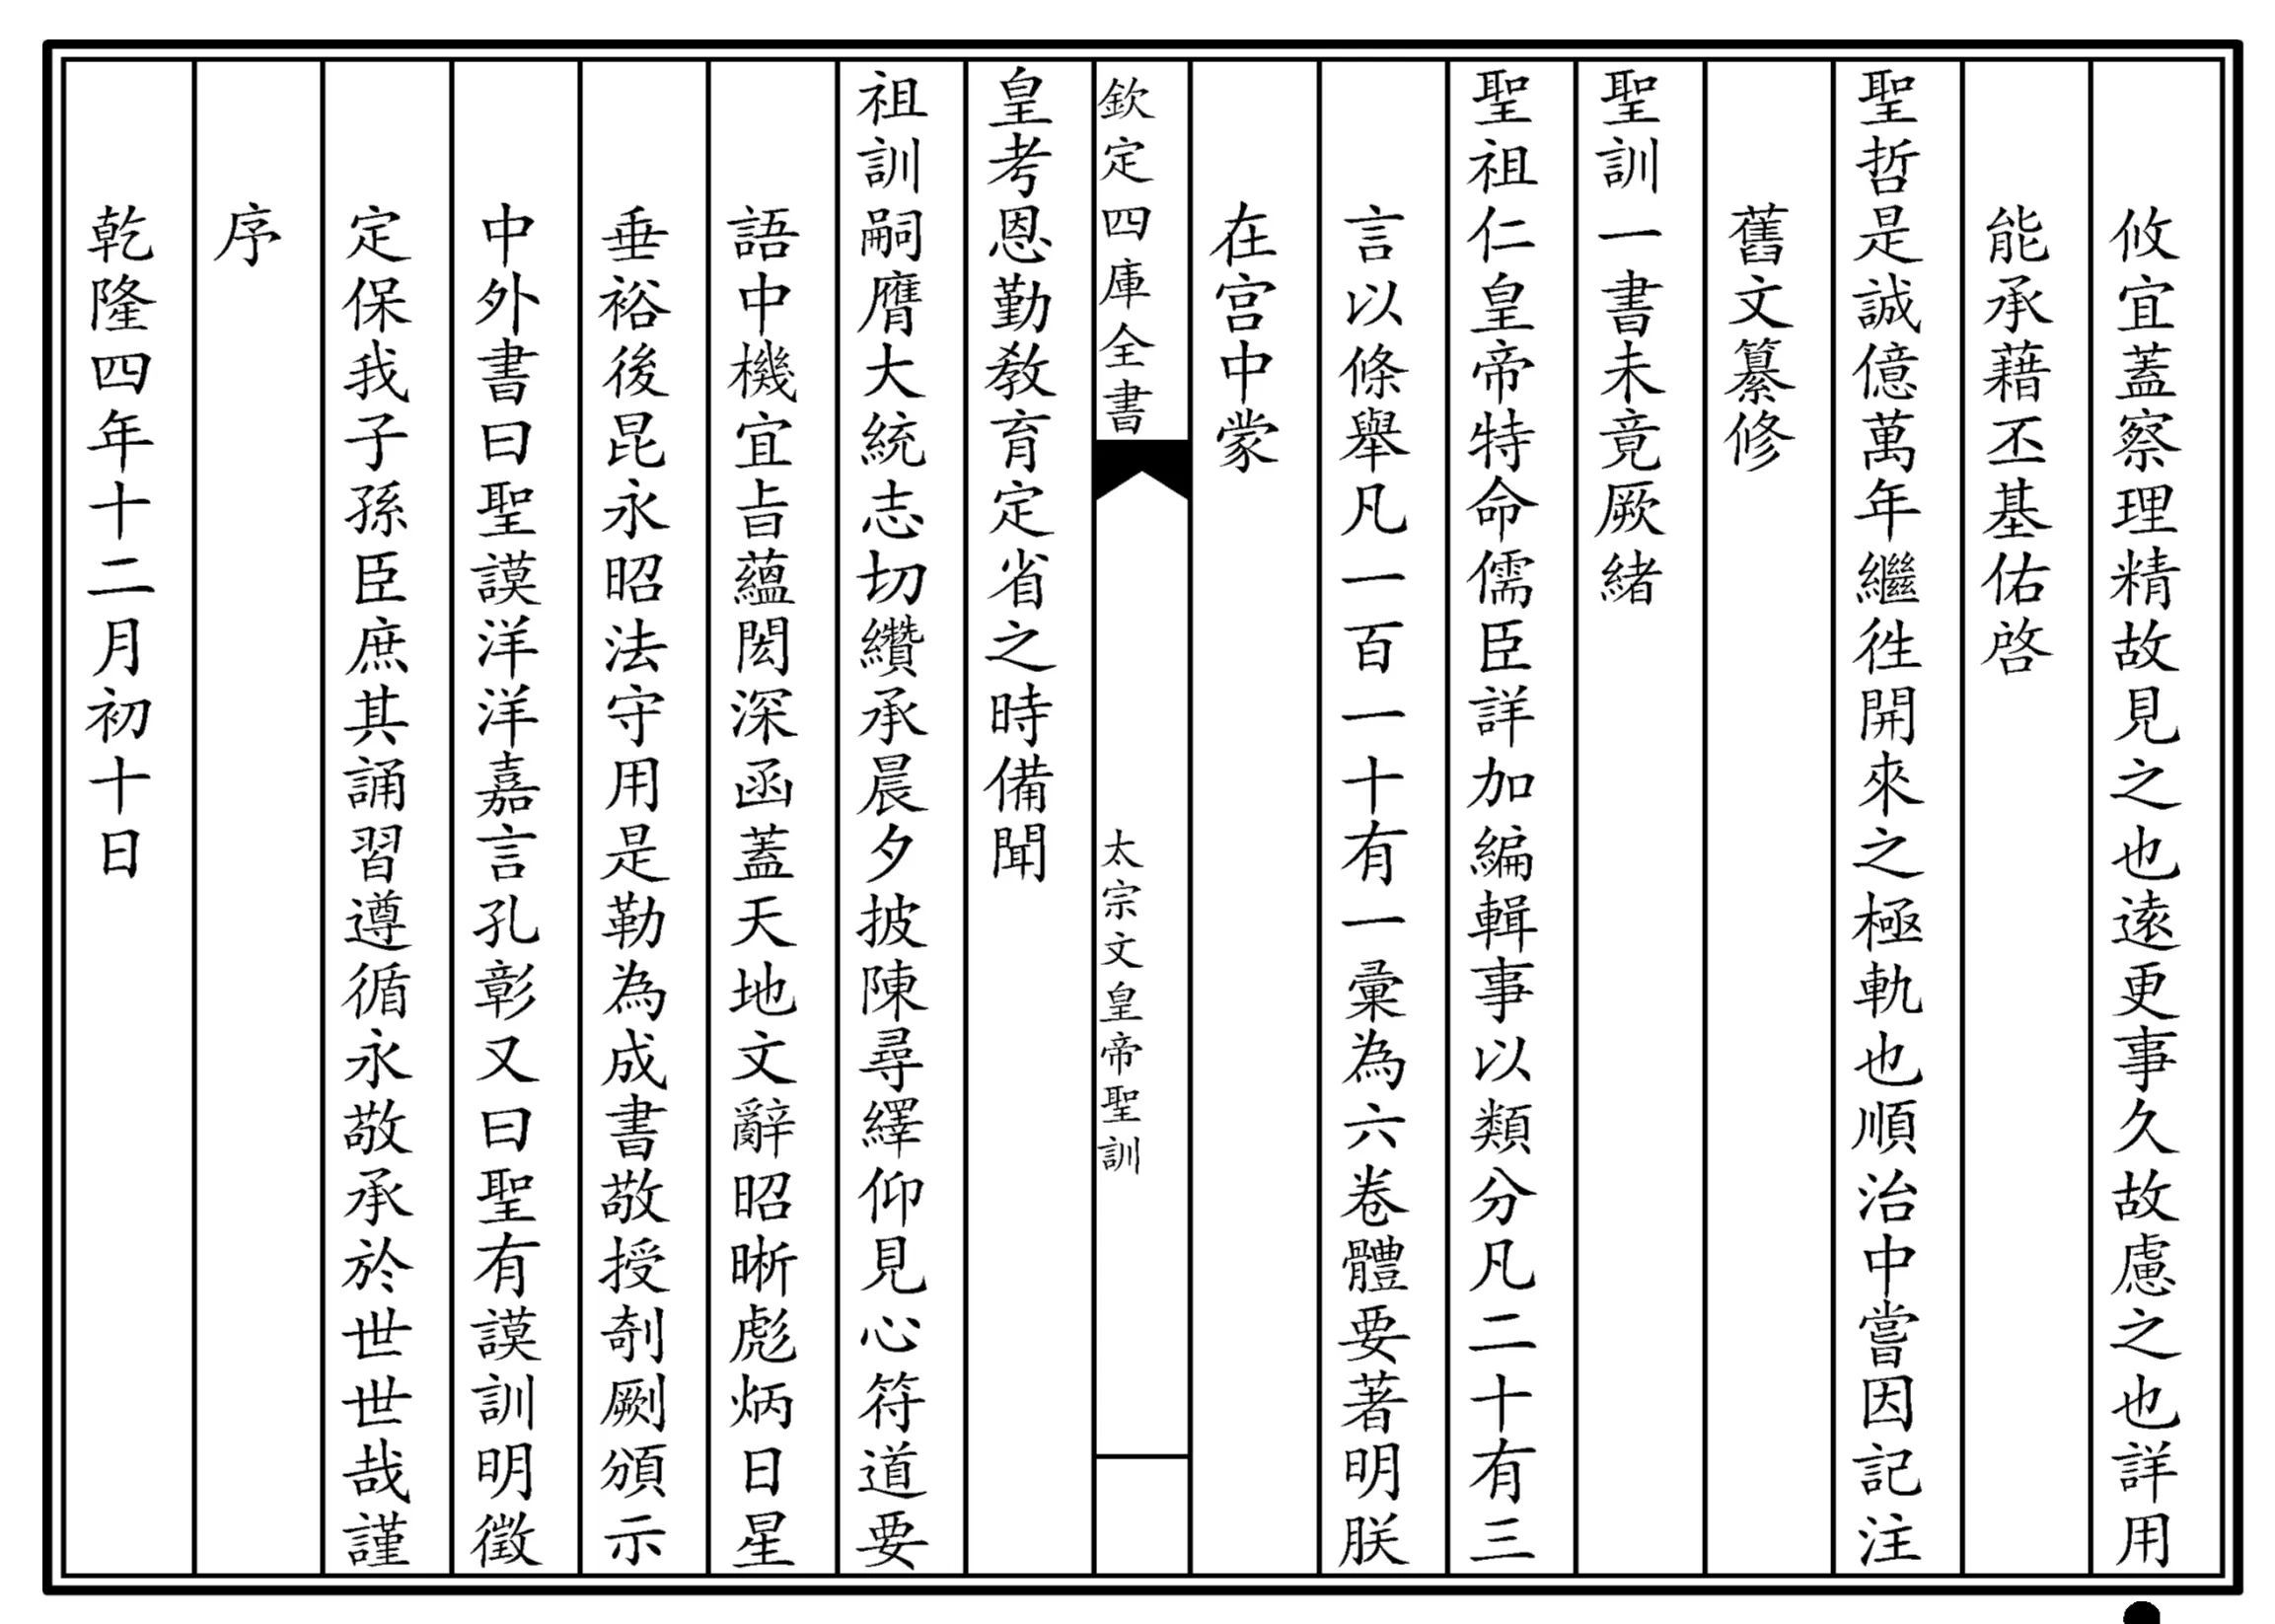 攸宜蓋察理精故見之也逺更事久故慮之也詳用
能承藉丕基佑啓
聖哲是誠億萬年繼徃開來之極軌也順治中嘗因記注
舊文纂修
聖訓一書未竟厥緒
聖祖仁皇帝特命儒臣詳加編輯事以類分凡二十有三
言以條舉凡一百一十有一彙為六卷體要著明朕
在宫中蒙
欽定四庫全書
太宗文皇帝聖訓
皇考恩勤敎育定省之時備聞
祖訓嗣膺大統志切纘承晨夕披陳尋繹仰見心符道要
語中機宜㫖蘊閎深函蓋天地文辭昭晰彪炳日星
垂裕後昆永昭法守用是勒為成書敬授剞劂頒示
中外書曰聖謨洋洋嘉言孔彰又曰聖有謨訓明徵
定保我子孫臣庶其誦習遵循永敬承於世世哉謹
序
乾隆四年十二月初十日